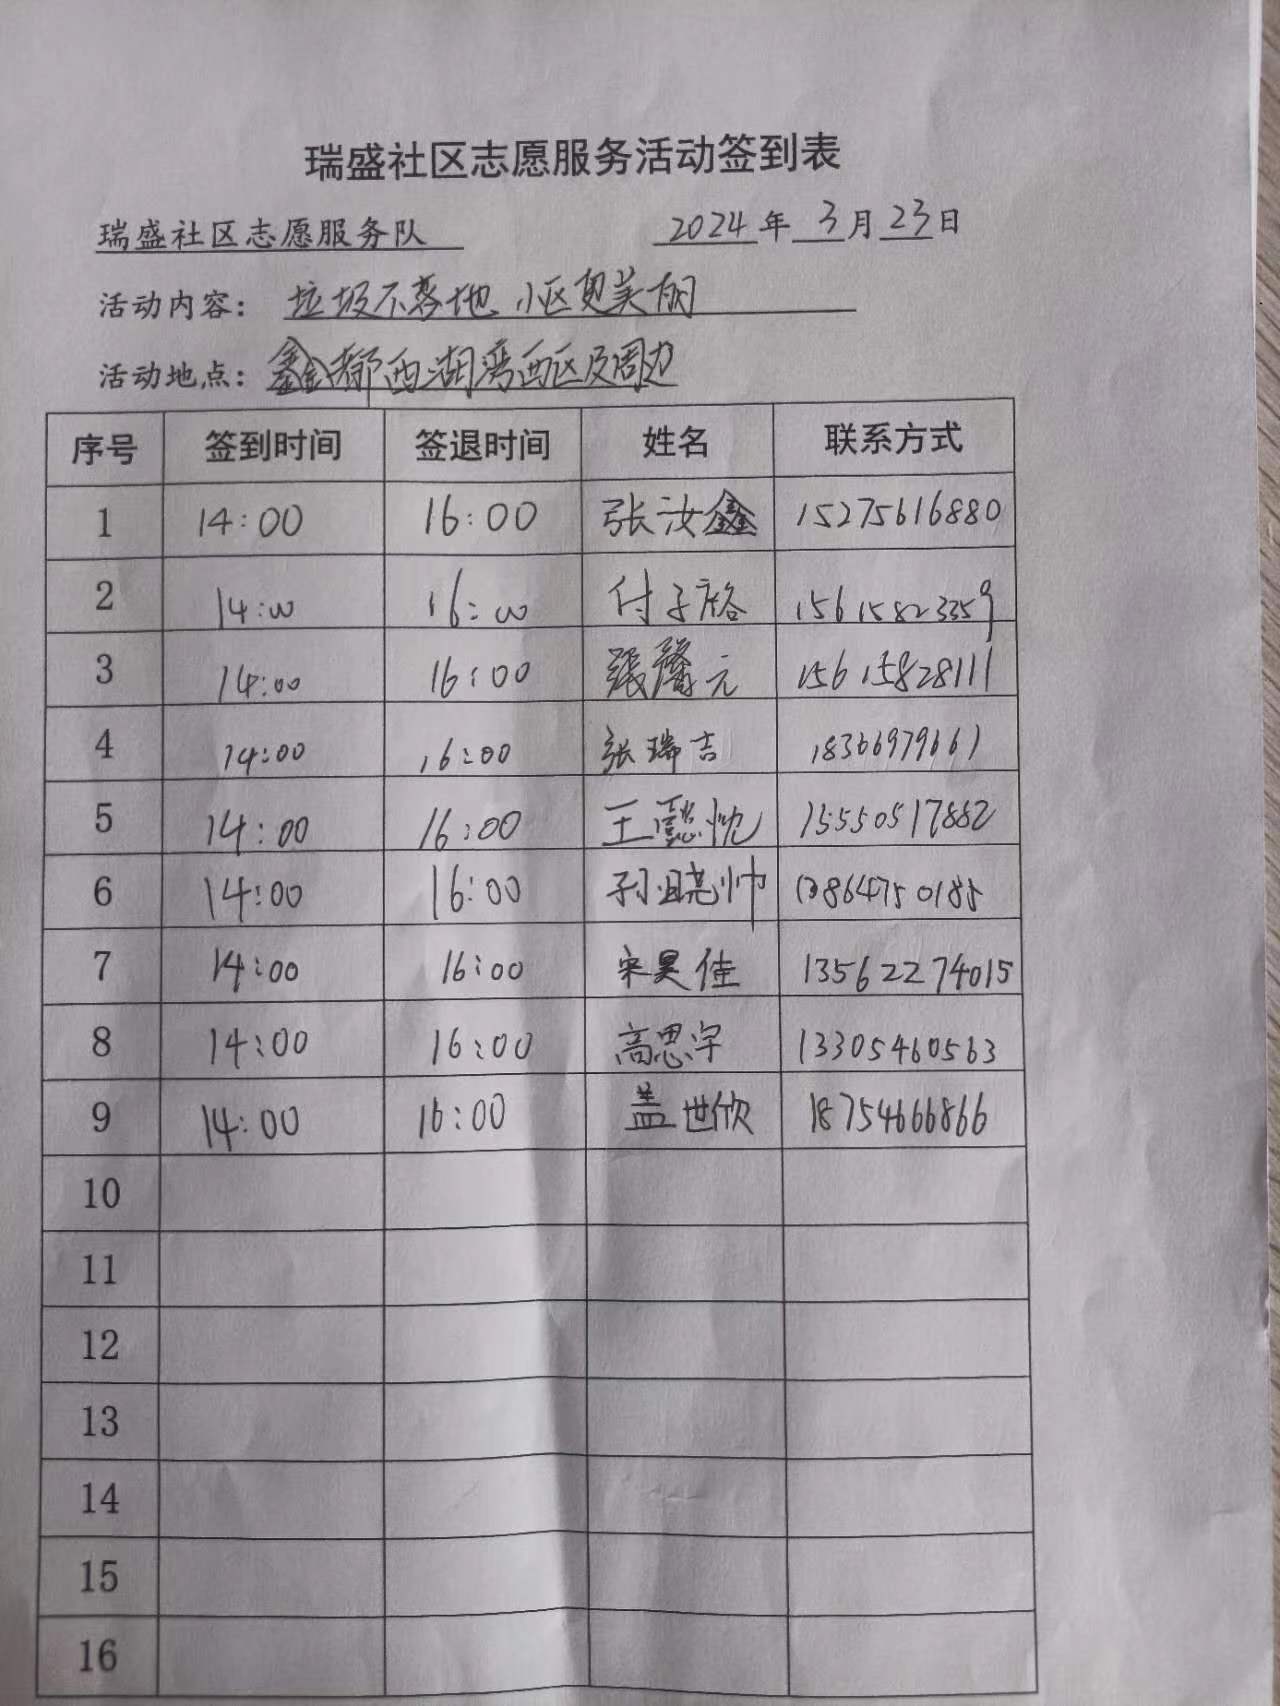 瑞盛社区志愿服务活动签到表
瑞盛社区志愿服务队 2024年 3月 23日
活动内容： 垃圾不落地 小区更美丽
活动地点： 鑫都西湖湾西区及周边
序号 签到时间 签退时间 姓名 联系方式
1 14:00 16:00 张汝鑫 15275616880
2 14:00 16:00 付子裕 15615823359
3 14:00 16:00 張馨元 15615828111
4 14:00 16:00 张瑞吉 18366979661
5 14:00 16:00 王懿忱 15550517882
6 14:00 16:00 孙晓帅 13864750185
7 14:00 16:00 宋昊佳 13562274015
8 14:00 16:00 高思宇 13305460563
9 14:00 16:00 盖世欣 18754666866
10
11
12
13
14
15
16